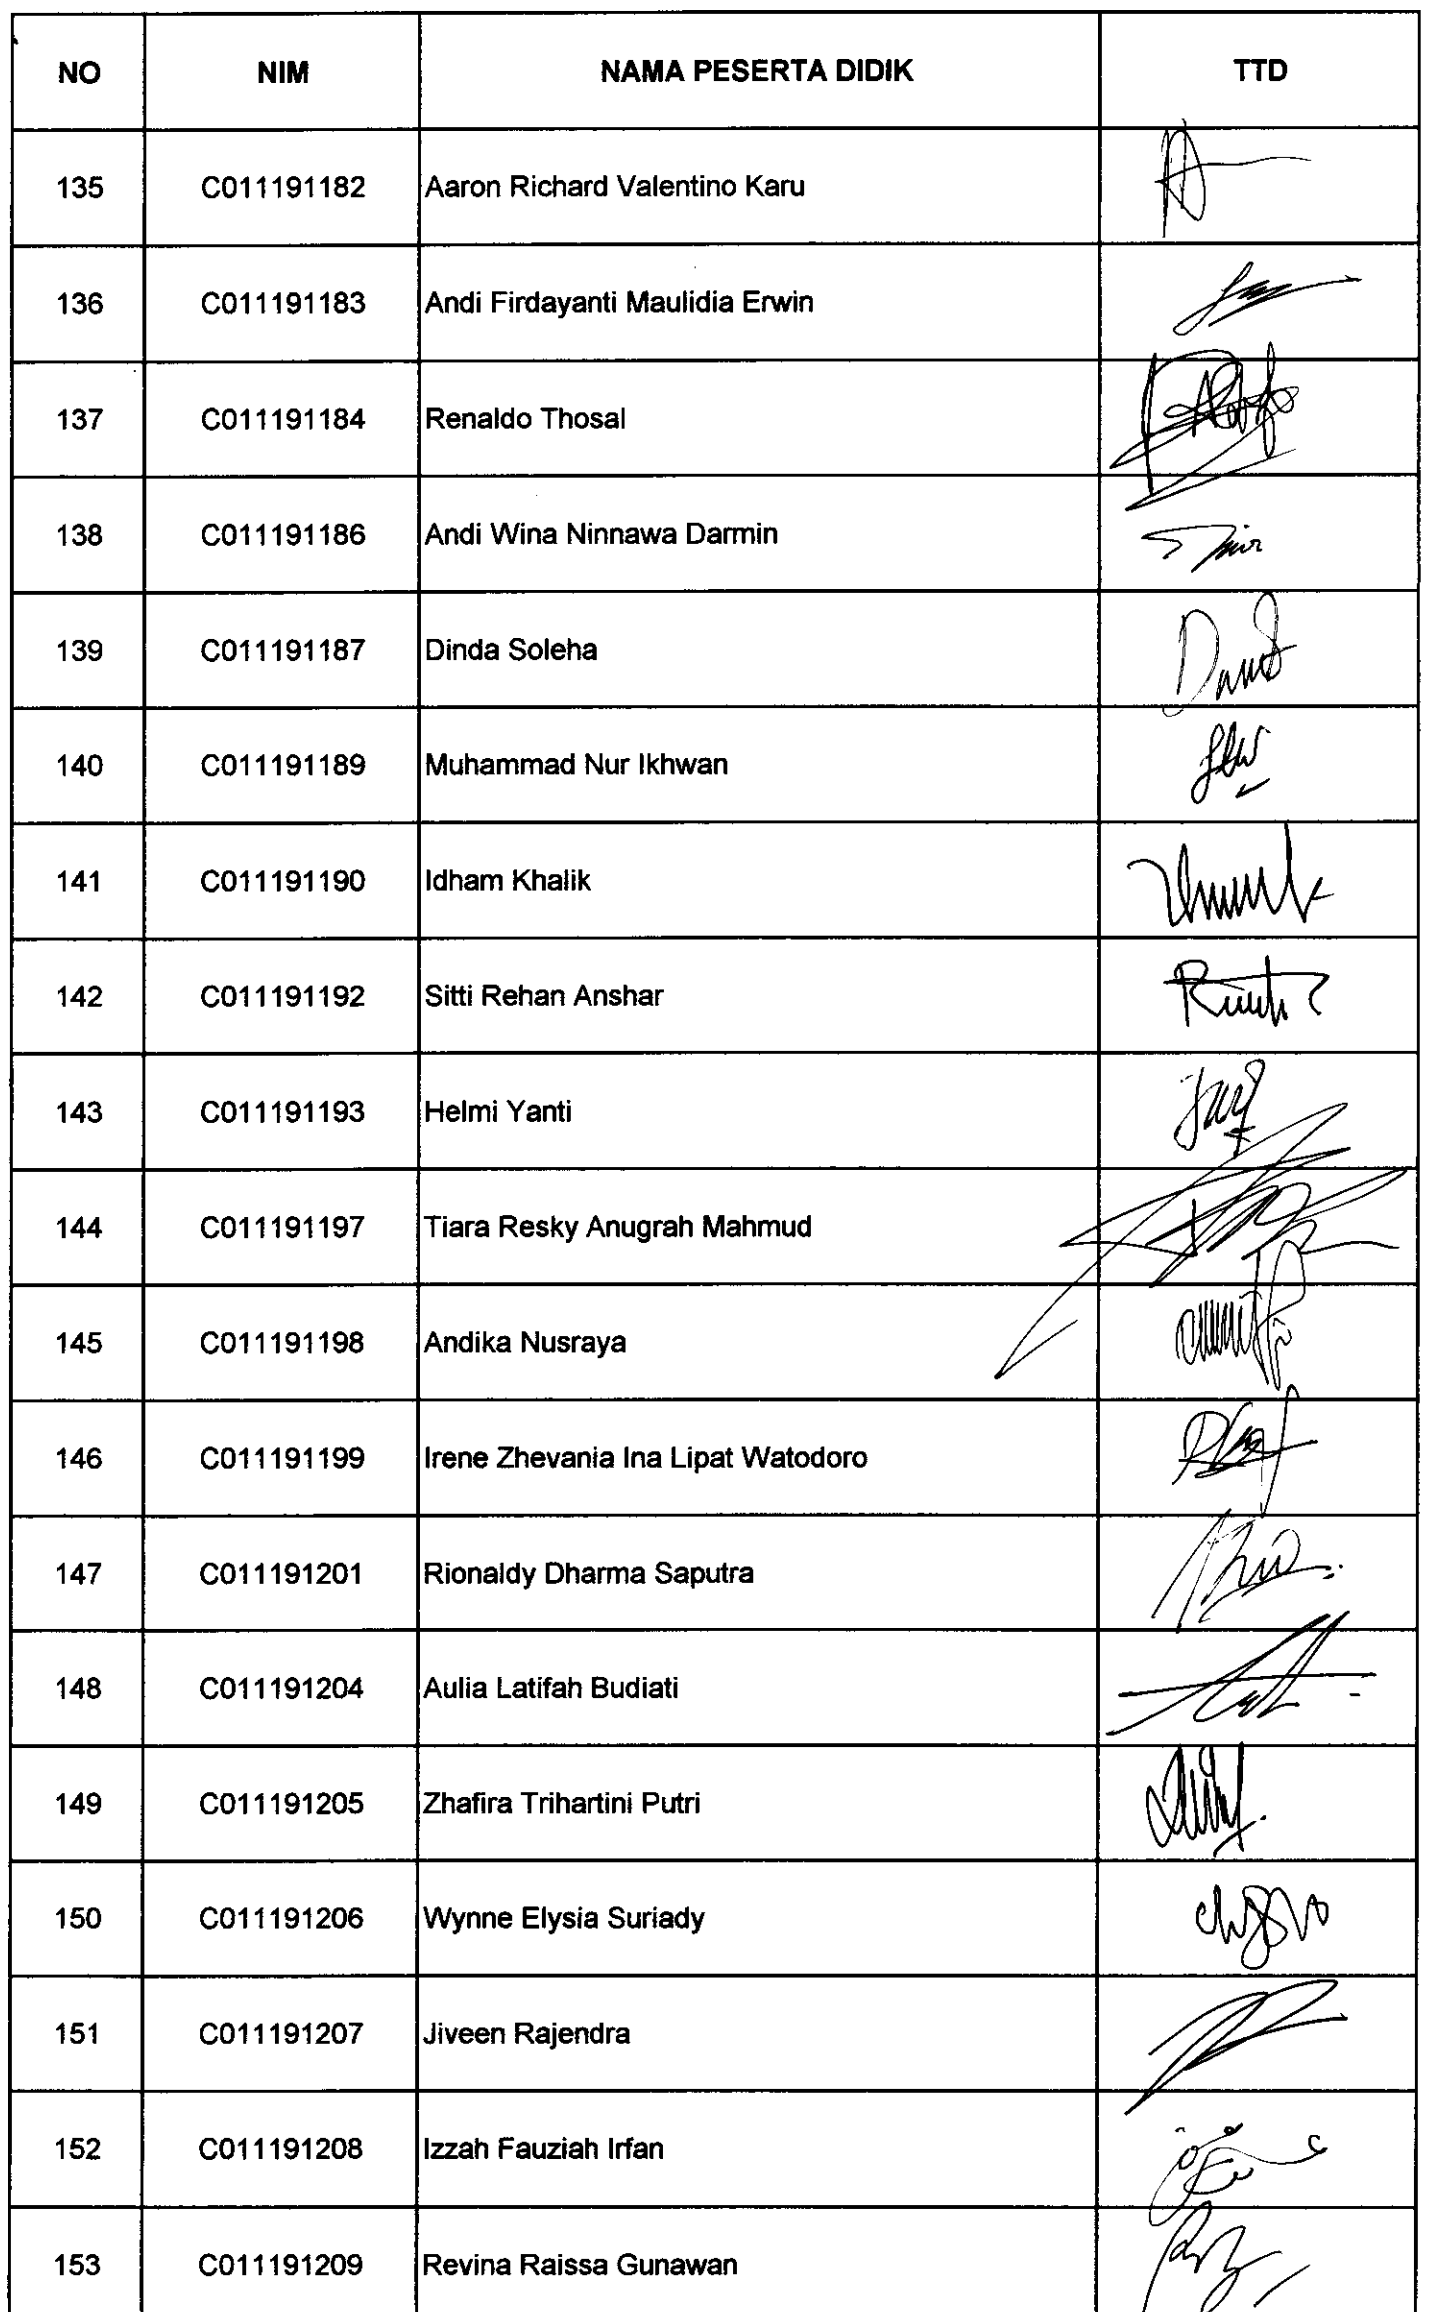 NO NIM NAMA PESERTA DIDIK TTD
135 C011191182 Aaron Richard Valentino Karu
136 C011191183 Andi Firdayanti Maulidia Erwin
137 C011191184 Renaldo Thosal
138 C011191186 Andi Wina Ninnawa Darmin
139 C011191187 Dinda Soleha
140 C011191189 Muhammad Nur Ikhwan
141 C011191190 Idham Khalik
142 C011191192 Sitti Rehan Anshar
143 C011191193 Helmi Yanti
144 C011191197 Tiara Resky Anugrah Mahmud
145 C011191198 Andika Nusraya
146 C011191199 Irene Zhevania Ina Lipat Watodoro
147 C011191201 Rionaldy Dharma Saputra
148 C011191204 Aulia Latifah Budiati
149 C011191205 Zhafira Trihartini Putri
150 C011191206 Wynne Elysia Suriady
151 C011191207 Jiveen Rajendra
152 C011191208 Izzah Fauziah Irfan
153 C011191209 Revina Raissa Gunawan